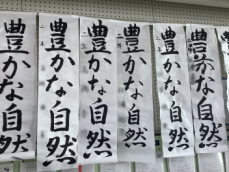 豊かな自然
豊かな自然
豊かな自然
豊かな自然
豊かな自然
豊かな自然